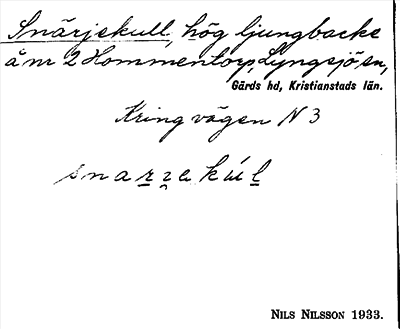 Snärjekull, hög ljungbacke
å nr 2 Hommentorp, Lyngsjö sn,
Gärds hd, Kristianstads län.
Kring vägen N 3
snarzekúl
NILS NILSSON 1933.